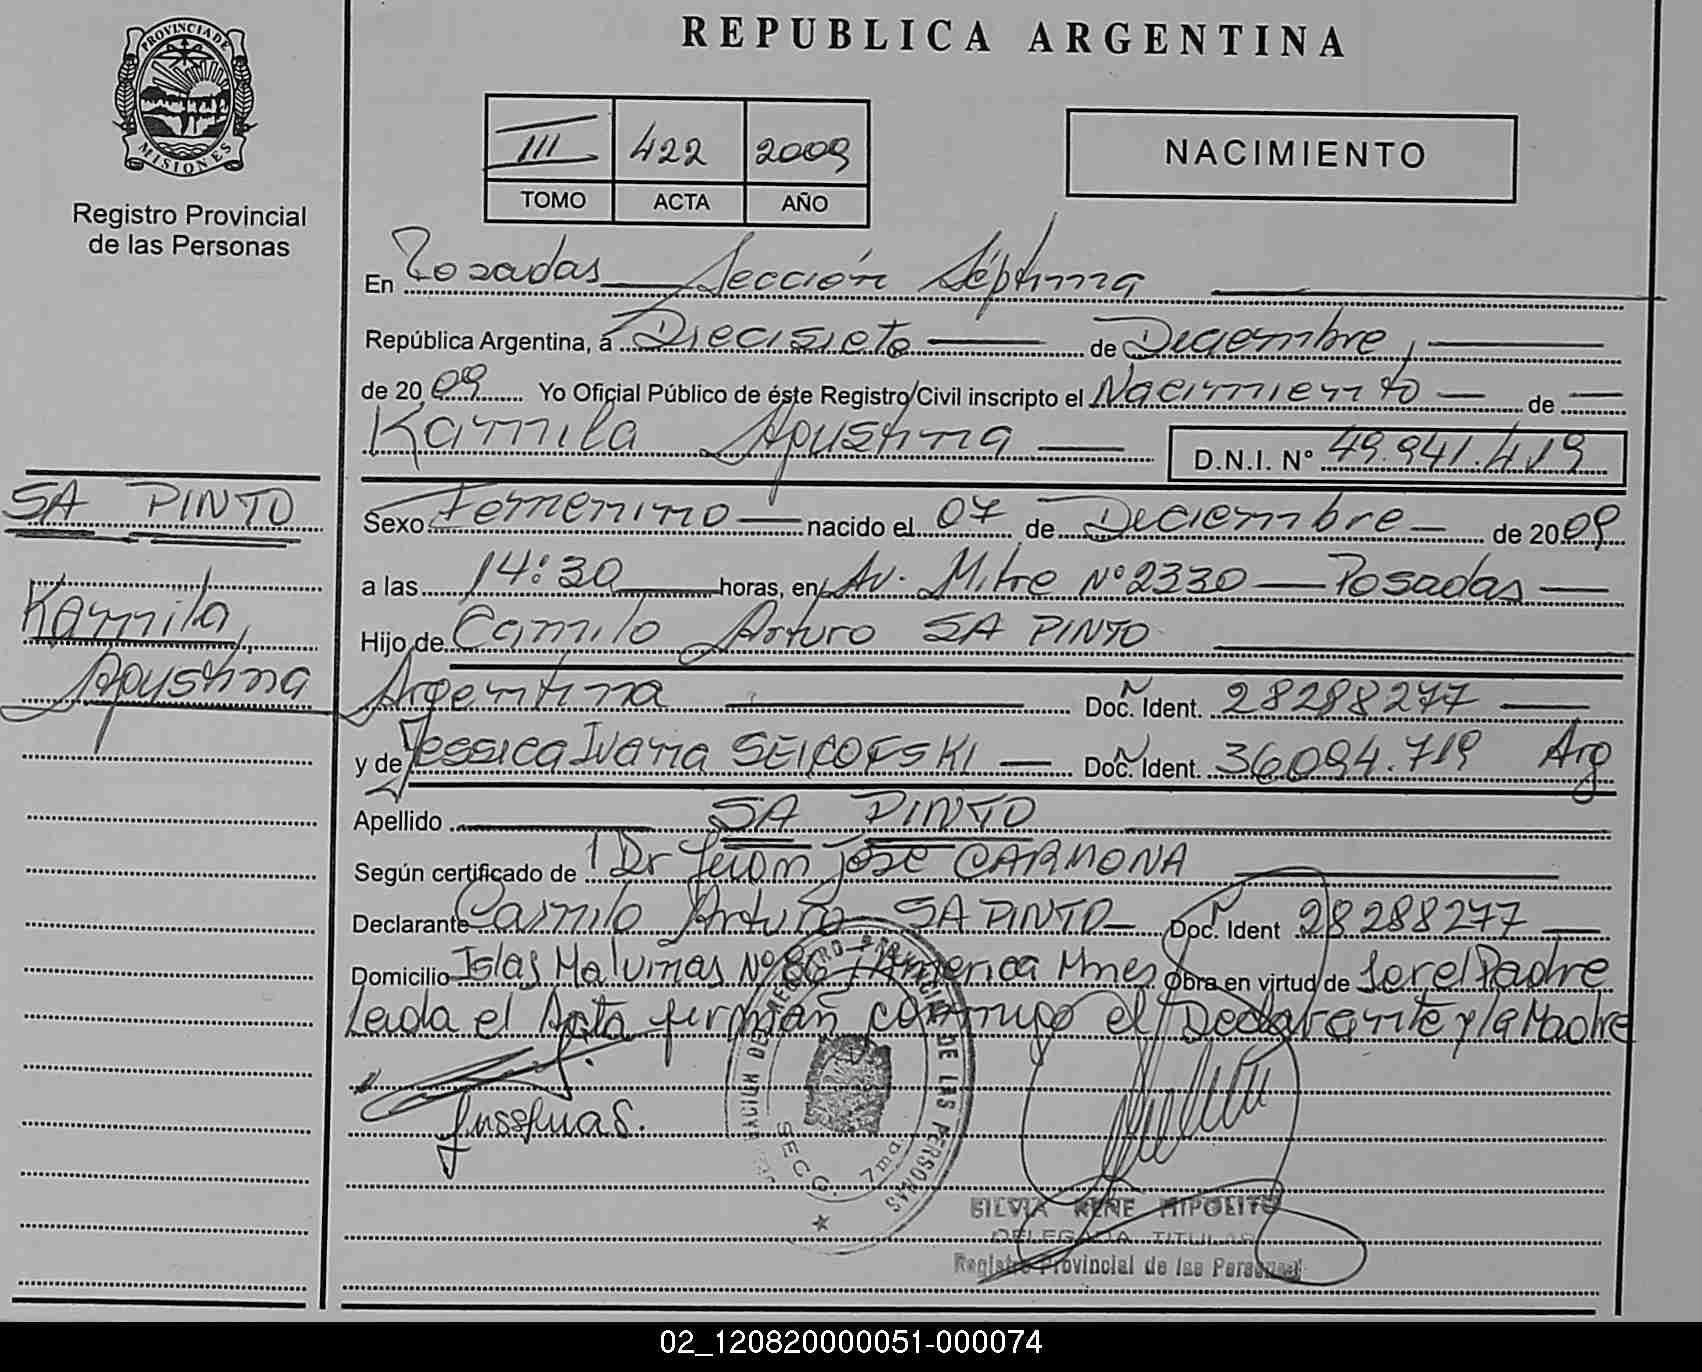 PROVINCIA DE
MISIONES
Registro Provincial
de las Personas
REPUBLICA ARGENTINA
III 422 2009
TOMO ACTA AÑO
NACIMIENTO
En Posadas Sección Séptima
República Argentina, a Diecisiete de Diciembre,
de 20 09 Yo Oficial Público de éste Registro Civil inscripto el Nacimiento de
Kamila Agustina D.N.I. N° 49.941.419
SA PINTO
Kamila,
Agustina
Sexo Femenino nacido el 07 de Diciembre de 2009
a las 14:30 horas, en Av. Mitre N° 2330 Posadas
Hijo de Camilo Arturo SA PINTO
Argentina Doc. Ident. 28288277
y de Jessica Ivana Doc. Ident. 36094.719 Arg
Apellido SA PINTO
Según certificado de Dr Juan José CARMONA
Declarante Camilo Arturo SA PINTO Doc. Ident 28288277
Domicilio Islas Malvinas N° 86 America Mnes Obra en virtud de Ser el Padre
Leida el Acta firman conmigo el Declarante y la Madre
PROVINCIAL DE LAS PERSONAS
SECC. 7ma
SILVIA RENE HIPOLITO
DELEGADA TITULAR
Registro Provincial de las Personas
02_120820000051-000074